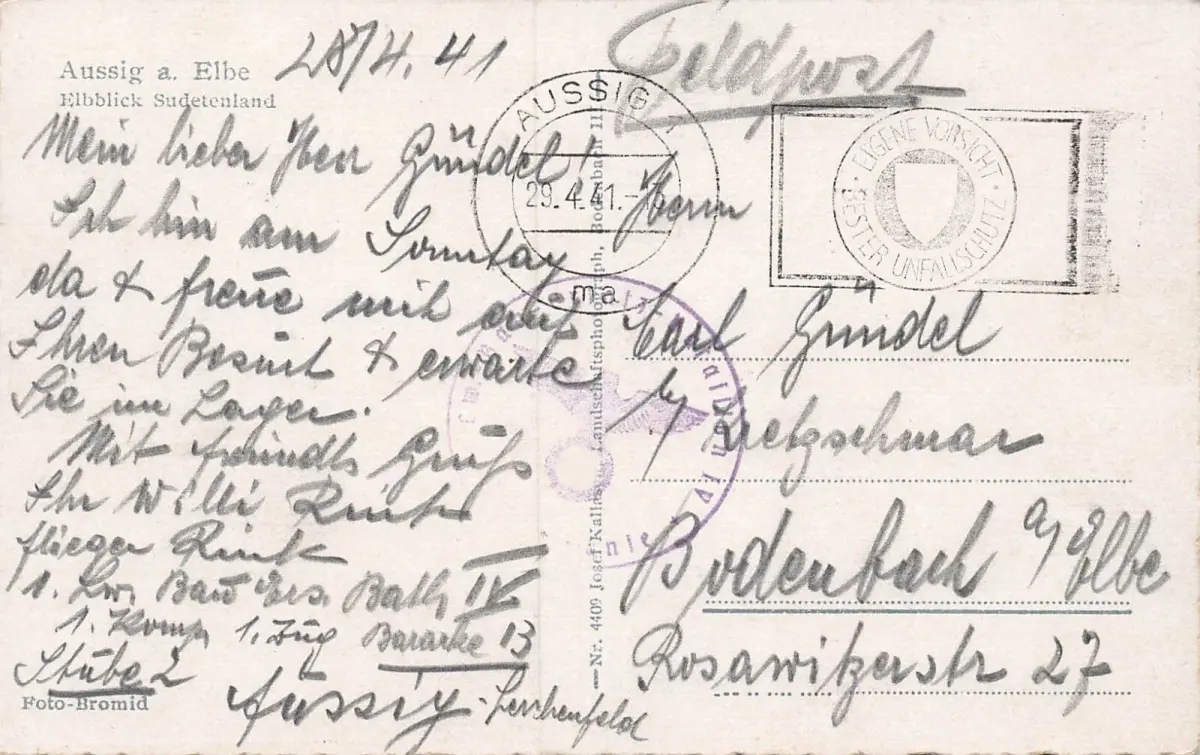 Aussig a. Elbe
Elbblick Sudetenland
28/4. 41
Mein lieber Herr Gündel!
Ich bin am Sonntag
da & freue mich auf
Ihren Besuch & erwarte
Sie im Lager.
Mit freundl. Gruß
Ihr Willi
Flieger
1. Lw. Bau Ers. Batl. IV
1. Komp. 1. Zug Baracke 13
Stube 2
Aussig-Lerchenfeld
Foto-Bromid
Nr. 4409 Josef Kallas, Landschaftsphotograph, Bodenbach III
Feldpost
AUSSIG 1
29.4.41.
ma
EIGENE VORSICHT · BESTER UNFALLSCHUTZ ·
Herrn
Karl Gündel
b/ Kretzschmar
Bodenbach a/Elbe
Rosawitzerstr 27